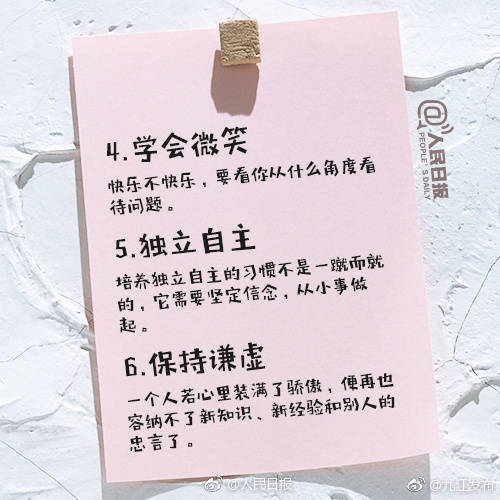 4.学会微笑
快乐不快乐，要看你从什么角度看
待问题。
5.独立自主
培养独立自主的习惯不是一蹴而就
的，它需要坚定信念，从小事做
起。
6.保持谦虚
一个人若心里装满了骄傲，便再也
容纳不了新知识、新经验和别人的
忠言了。
@人民日报
PEOPLE'S DAILY
@人民日报
@九江发布